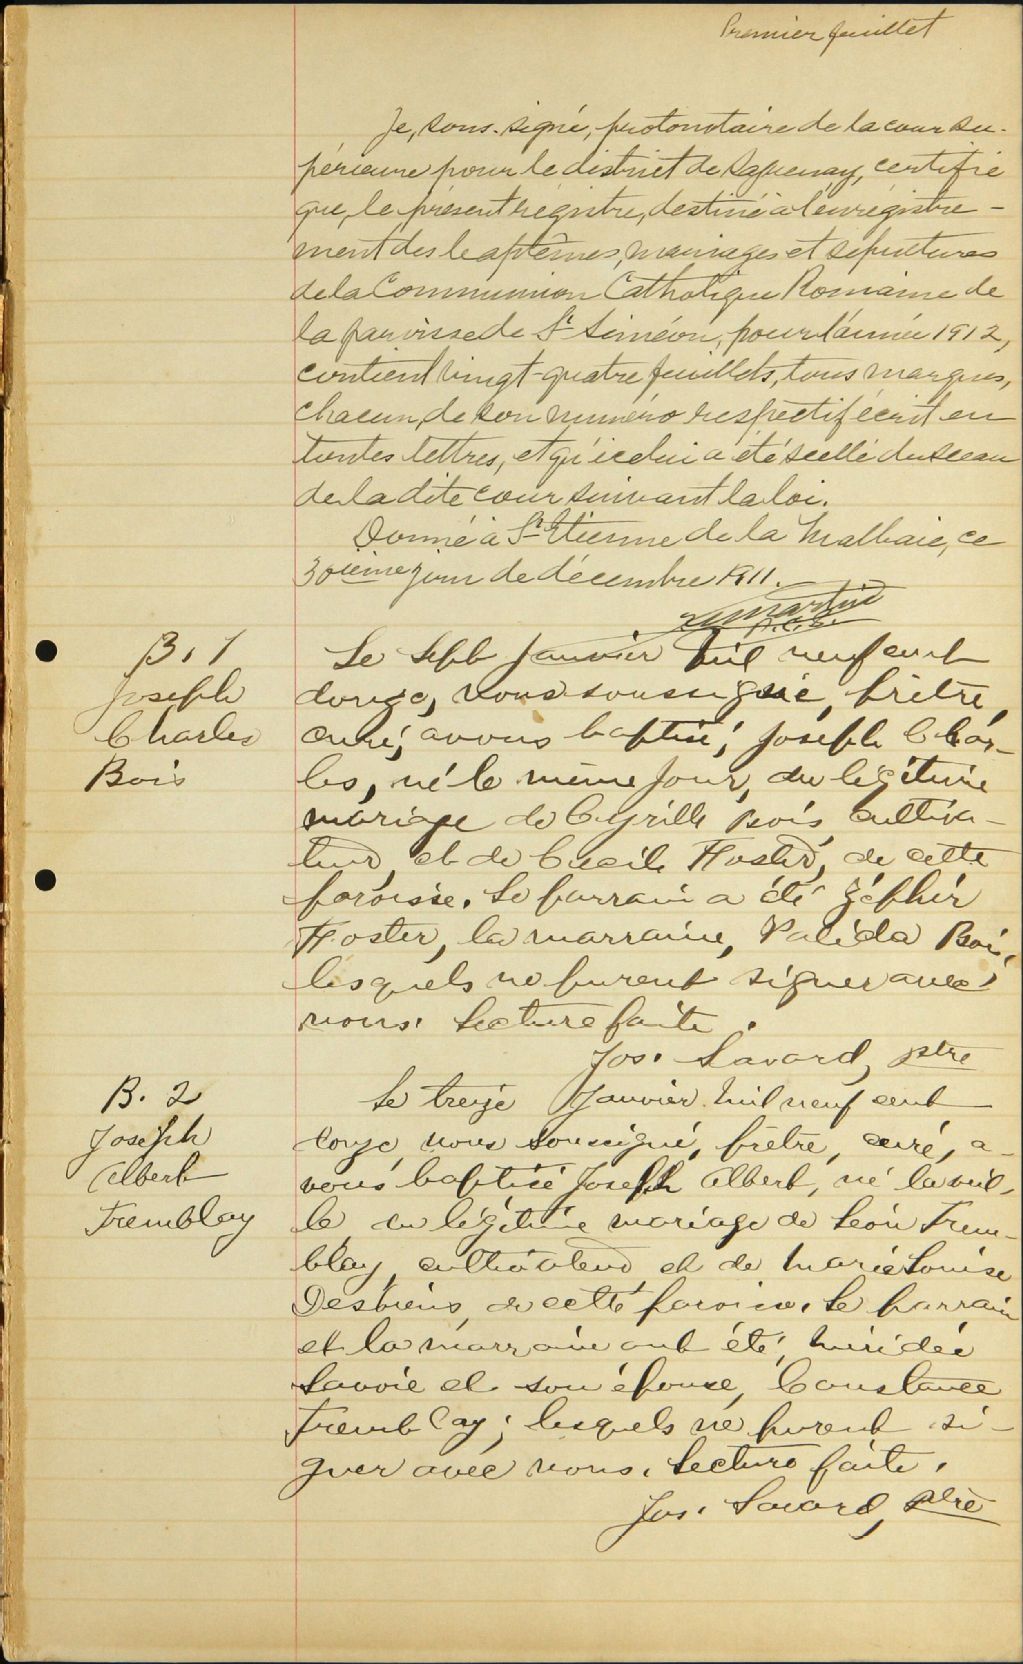 Premier feuillet
Je, sous-signé, protonotaire de la cour su-
périeure pour le district de Saguenay, certifie
que, le présent régistre, destiné à l'enrégistre-
ment des baptêmes, mariages et sépultures
de la Communion Catholique Romaine de
la paroisse de St Siméon, pour l'année 1912,
contient vingt-quatre feuillets, tous marqués,
chacun, de son numéro respectif écrit en
toutes lettres, et qu'icelui a été scellé du sceau
de la dite cour suivant la loi.
Donné à St Etienne de la Malbaie, ce
30ième jour de décembre 1911.
Martin
P.C.S.
B. 1
Joseph
Charles
Bois
Le sept janvier mil neuf cent
douze, nous soussigné, prêtre,
curé, avons baptisé, Joseph Char-
les, né le même jour, du légitime
mariage de Cyrille Bois, cultiva-
teur, et de Cécile Foster, de cette
paroisse. Le parrain a été Zéphir
Foster, la marraine, Valéda Bois,
lesquels ne purent signer avec
nous. Lecture faite.
Jos. Savard, ptre
B. 2
Joseph
Albert
Tremblay
Le treize Janvier mil neuf cent
douze, nous soussigné, prêtre, curé, a-
vons baptisé Joseph Albert, né la veil-
le du légitime mariage de Léon Trem-
blay, cultivateur et de Marie Louise
Desbiens, de cette paroisse. Le parrain
et la marraine ont été,
Savoie et son épouse, Constance
Tremblay; lesquels ne purent si-
gner avec nous. Lecture faite.
Jos. Savard, ptre